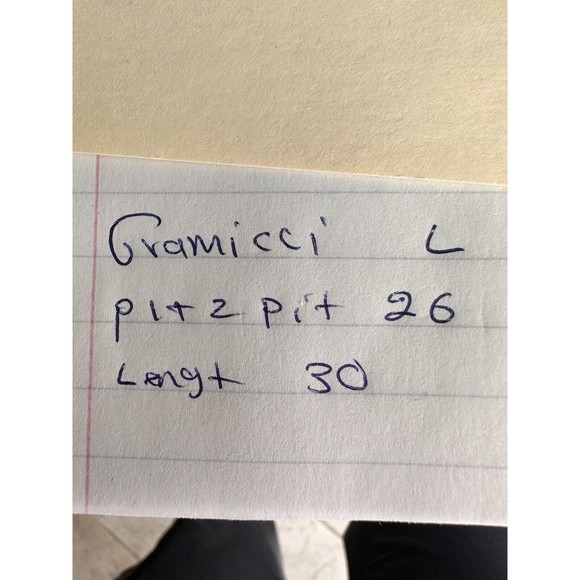 Gramicci L
pit 2 pit 26
Lengt 30